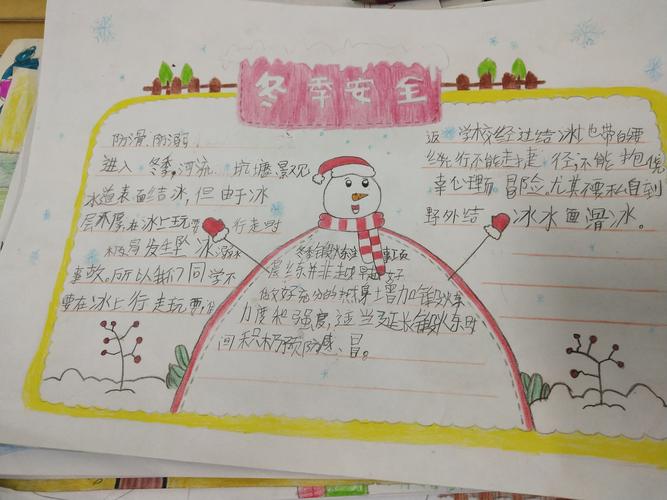 冬季安全
防滑、防溺
进入 冬季,河流、坑塘、景观
水道表面结冰,但由于冰
层不厚,在冰上玩耍 行走时
极易发生坠 冰溺水
事故。所以我们同学不
要在冰上行走玩耍,往
返 学校经过结冰地带白要
绕行不能走捷 径,不能抱侥
幸心理 冒险,尤其不要私自到
野外结 冰水面滑冰。
冬季锻炼
晨练并非越早越好
做好充分的热身增加锻炼
力度和强度,适当延长锻炼时
间积极预防感、冒。